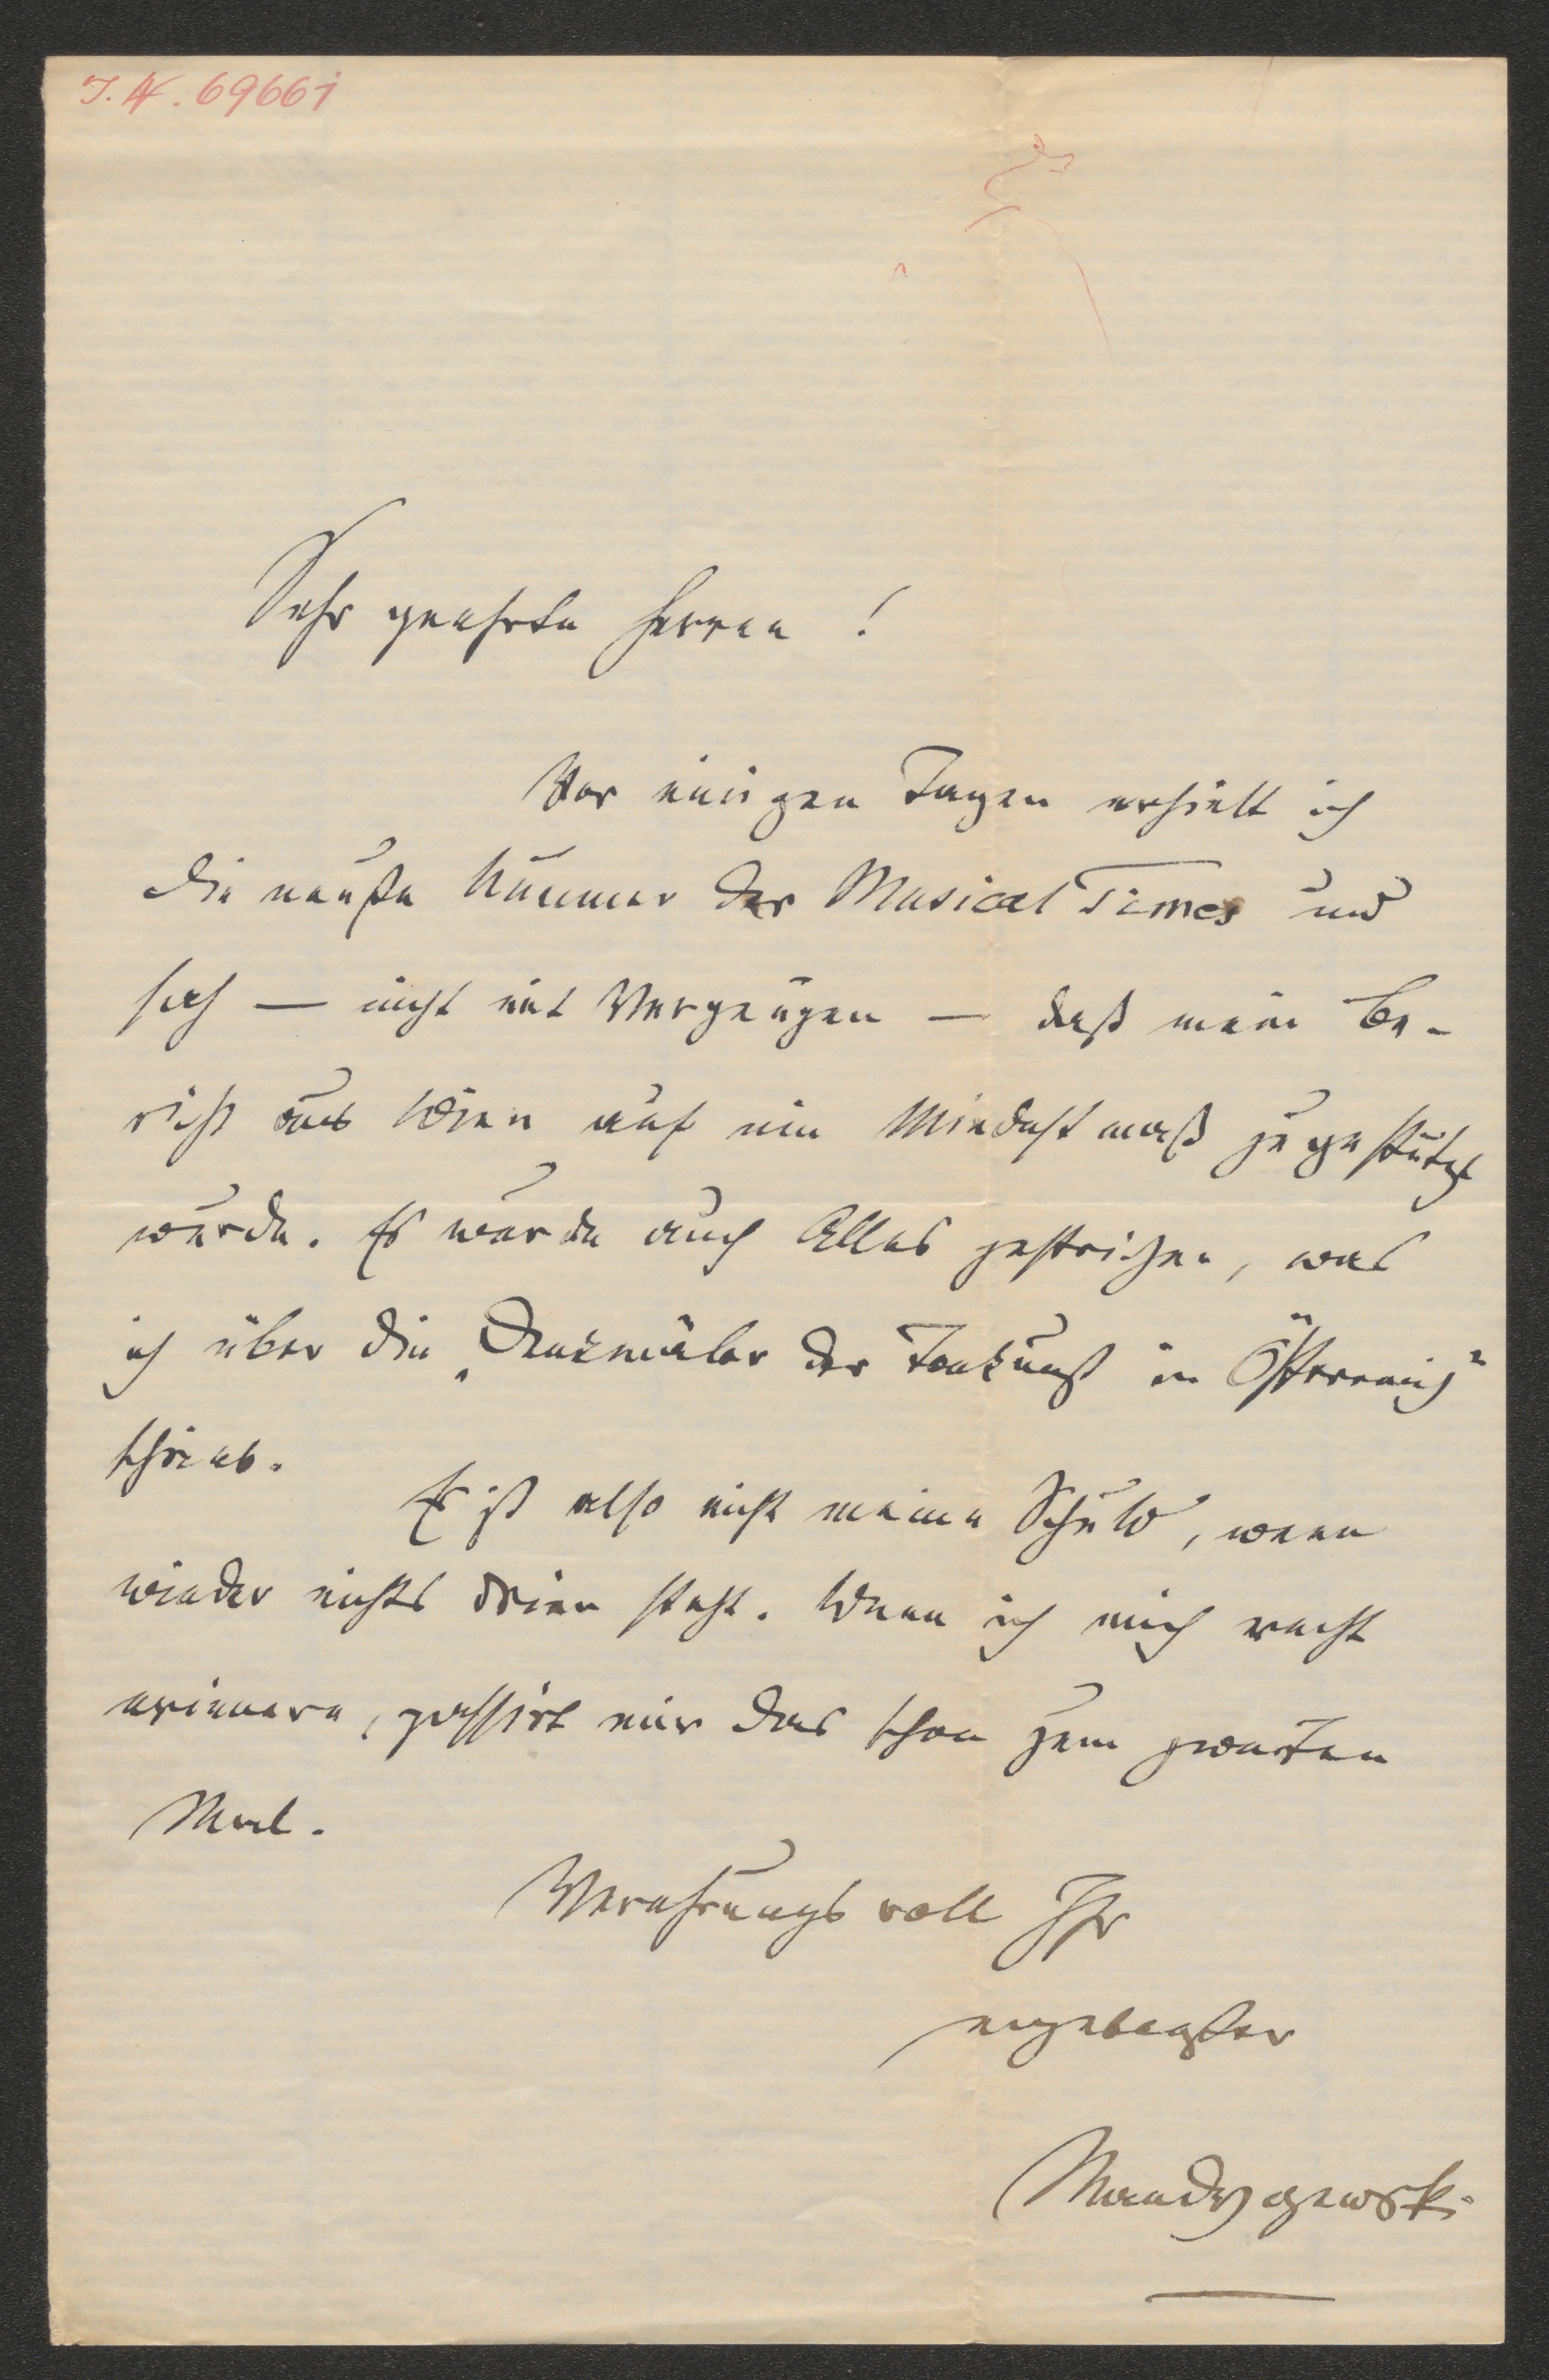 I. N. 69661
Sehr geehrte Herren !
Vor einigen Tagen erhielt ich
die neueste Nummer der Musical Times und
sah — nicht mit Vergnügen — daß mein Be-
richt aus Wien auf ein Mindestmaß zugestutzt
wurde. Es wurde auch Alles gestrichen, was
ich über die „Denkmäler der Tonkunst in Österreich“
schrieb.
Es ist also nicht meine Schuld, wenn
wieder nichts drin steht. Wenn ich mich recht
erinnere, passirt mir das schon zum zweiten
Mal.
Verehrungsvoll Ihr
ergebenster
Mandyczewski